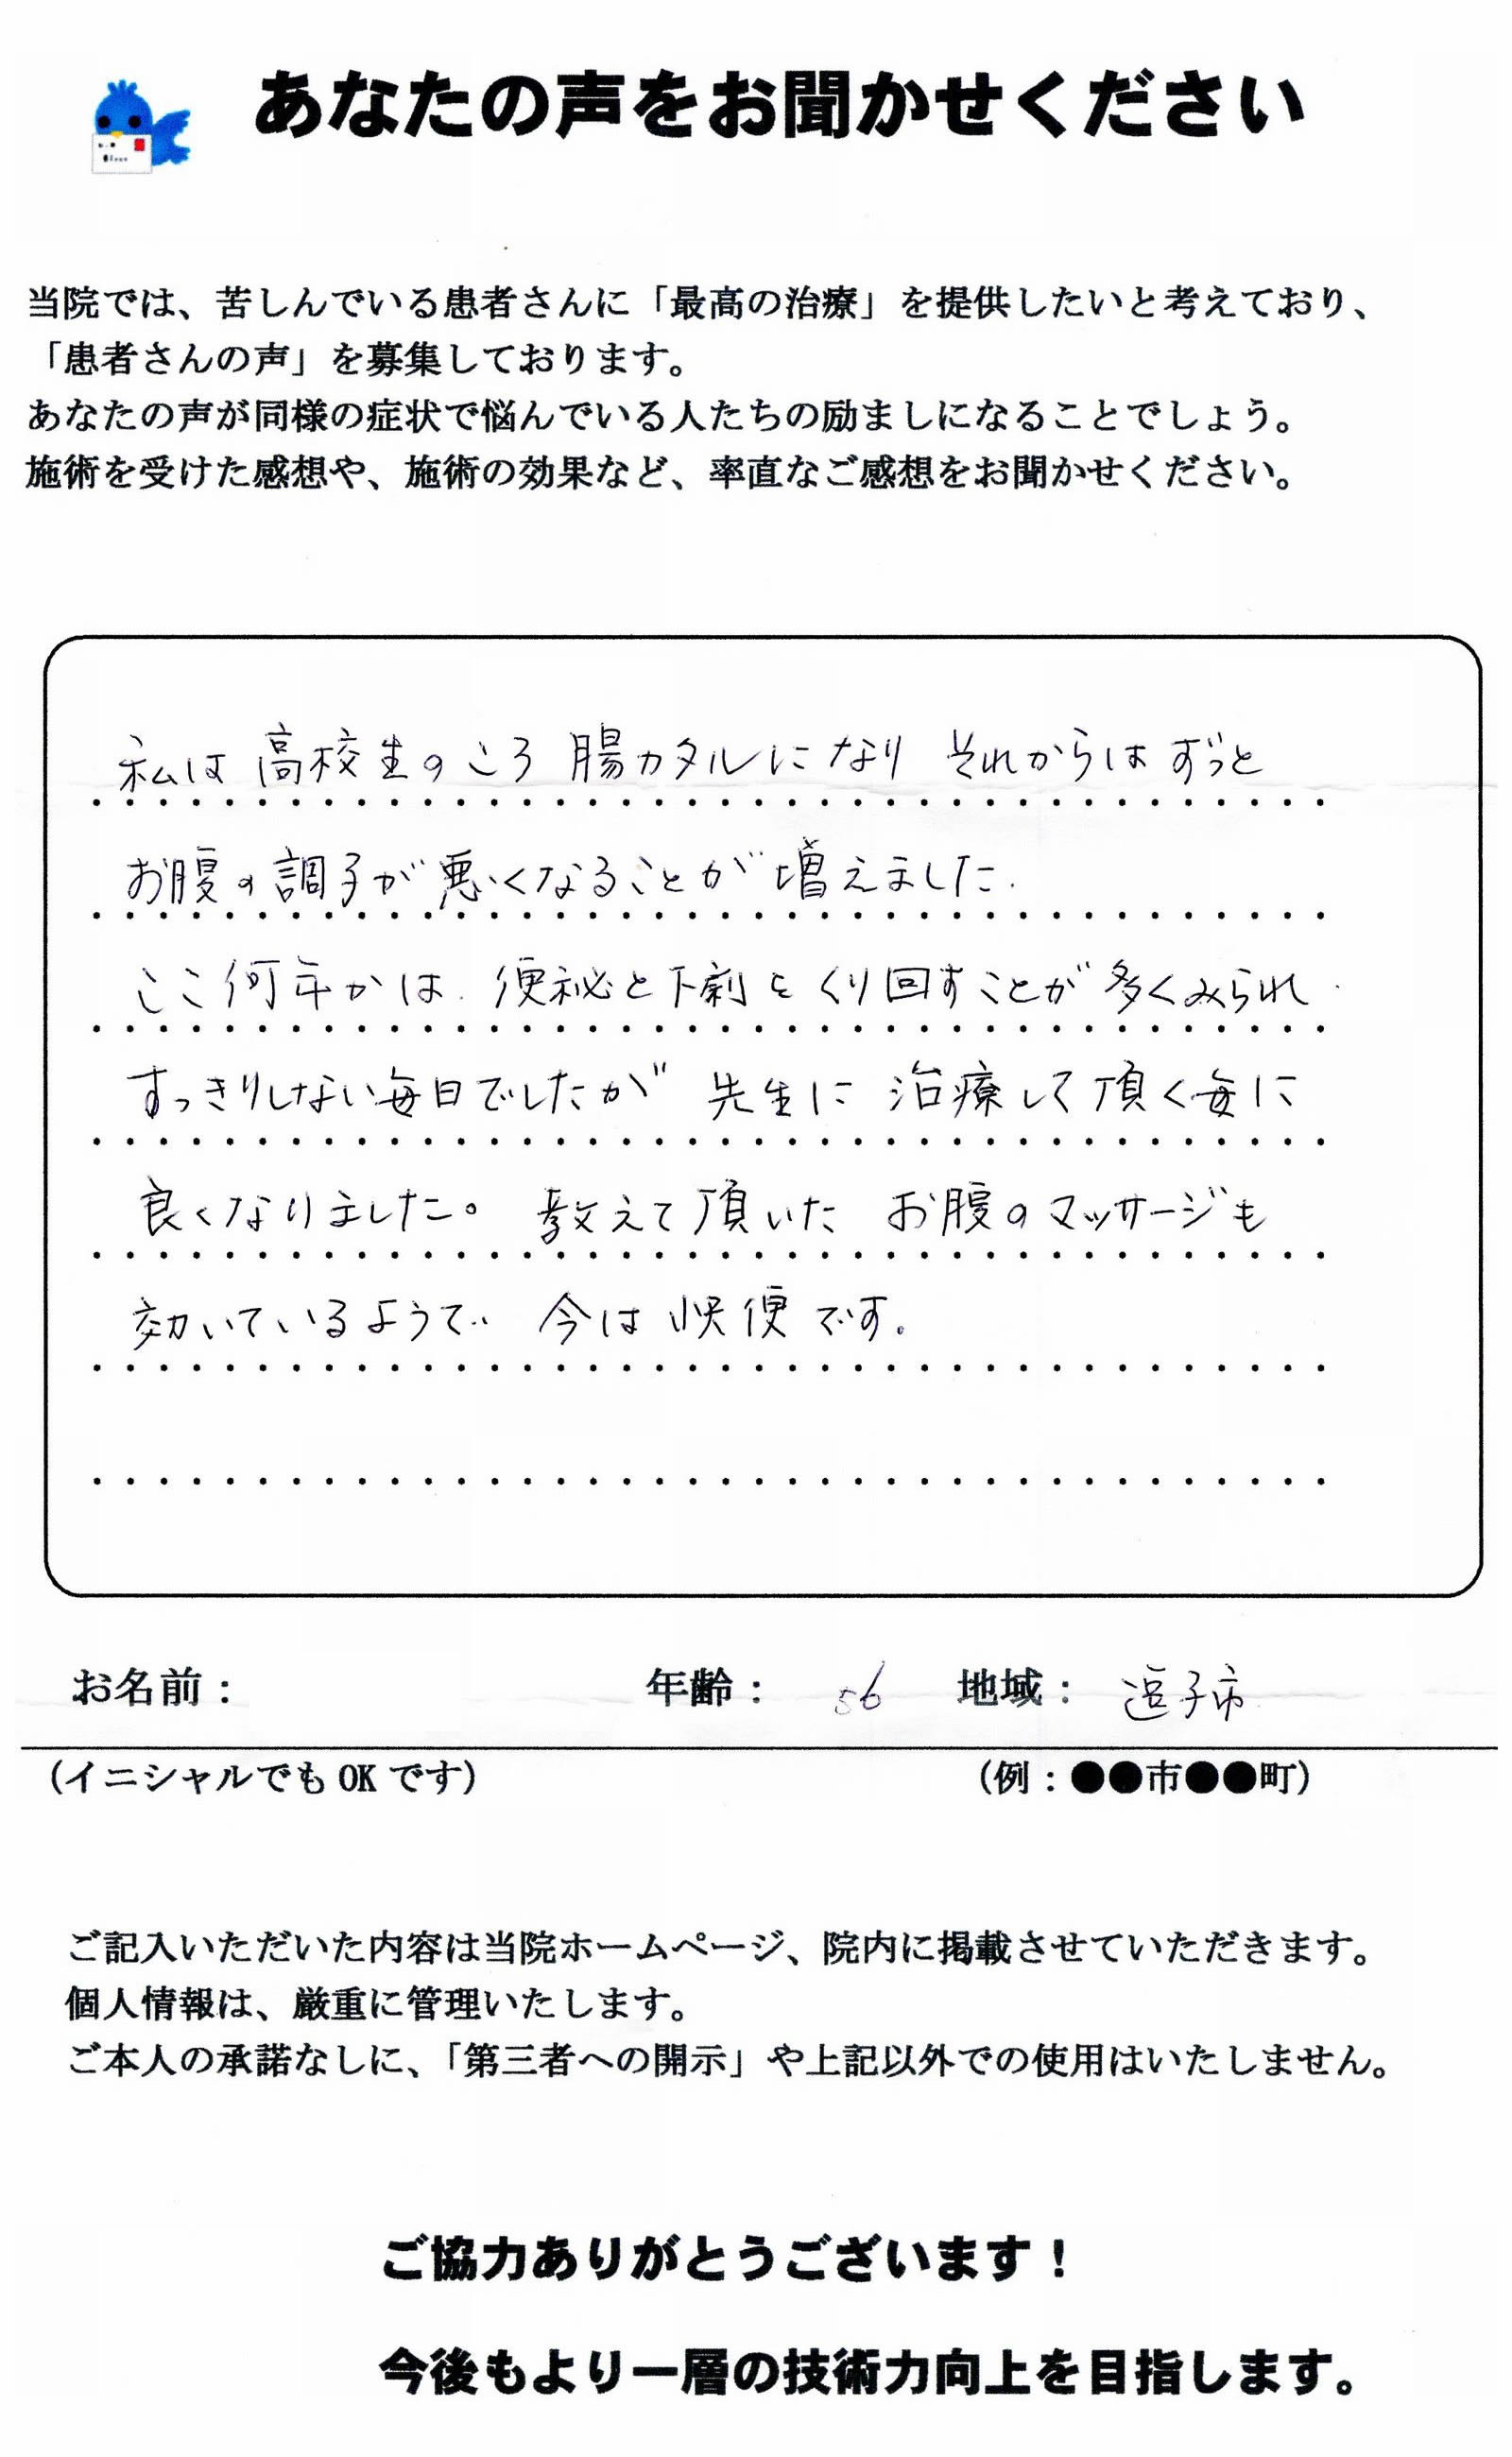 あなたの声をお聞かせください
当院では、苦しんでいる患者さんに「最高の治療」を提供したいと考えており、
「患者さんの声」を募集しております。
あなたの声が同様の症状で悩んでいる人たちの励ましになることでしょう。
施術を受けた感想や、施術の効果など、率直なご感想をお聞かせください。
私は 高校生のころ 腸カタルになり それからは ずっと
お腹の調子が悪くなることが 増えました.
ここ何年かは. 便秘と下痢をくり回すことが 多くみられ.
すっきりしない毎日でしたが 先生に 治療して頂く毎に
良くなりました。 教えて頂いた お腹のマッサージも
効いているようで 今は 快便です。
お名前： 年齢： 56 地域： 逗子市
（イニシャルでもOKです） （例：●●市●●町）
ご記入いただいた内容は当院ホームページ、院内に掲載させていただきます。
個人情報は、厳重に管理いたします。
ご本人の承諾なしに、「第三者への開示」や上記以外での使用はいたしません。
ご協力ありがとうございます！
今後もより一層の技術力向上を目指します。